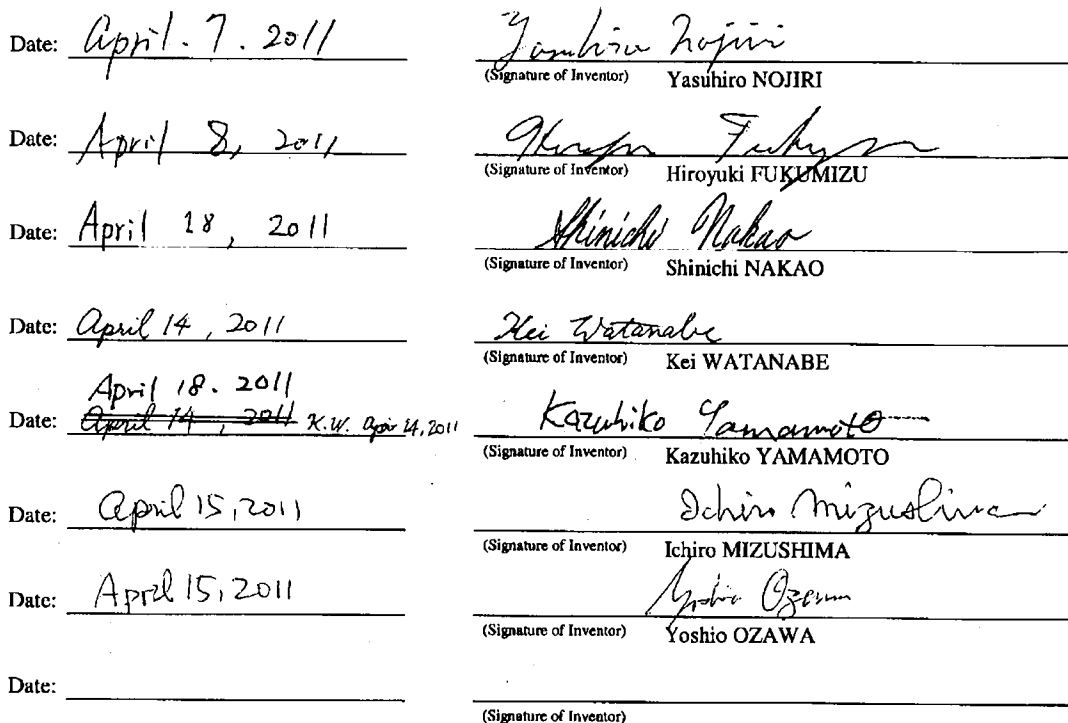 Date: April. 7. 2011 Yasuhiro Nojiri
(Signature of Inventor) Yasuhiro NOJIRI
Date: April 8, 2011
(Signature of Inventor) Hiroyuki FUKUMIZU
Date: April 18, 2011 Shinichi Nakao
(Signature of Inventor) Shinichi NAKAO
Date: April 14, 2011 Kei Watanabe
(Signature of Inventor) Kei WATANABE
April 18. 2011
Date: April 14, 2011 K.W. 14, 2011 Kazuhiko Yamamoto
(Signature of Inventor) Kazuhiko YAMAMOTO
Date: April 15, 2011 Ichiro Mizushima
(Signature of Inventor) Ichiro MIZUSHIMA
Date: April 15, 2011 Yoshio Ozawa
(Signature of Inventor) Yoshio OZAWA
Date:
(Signature of Inventor)